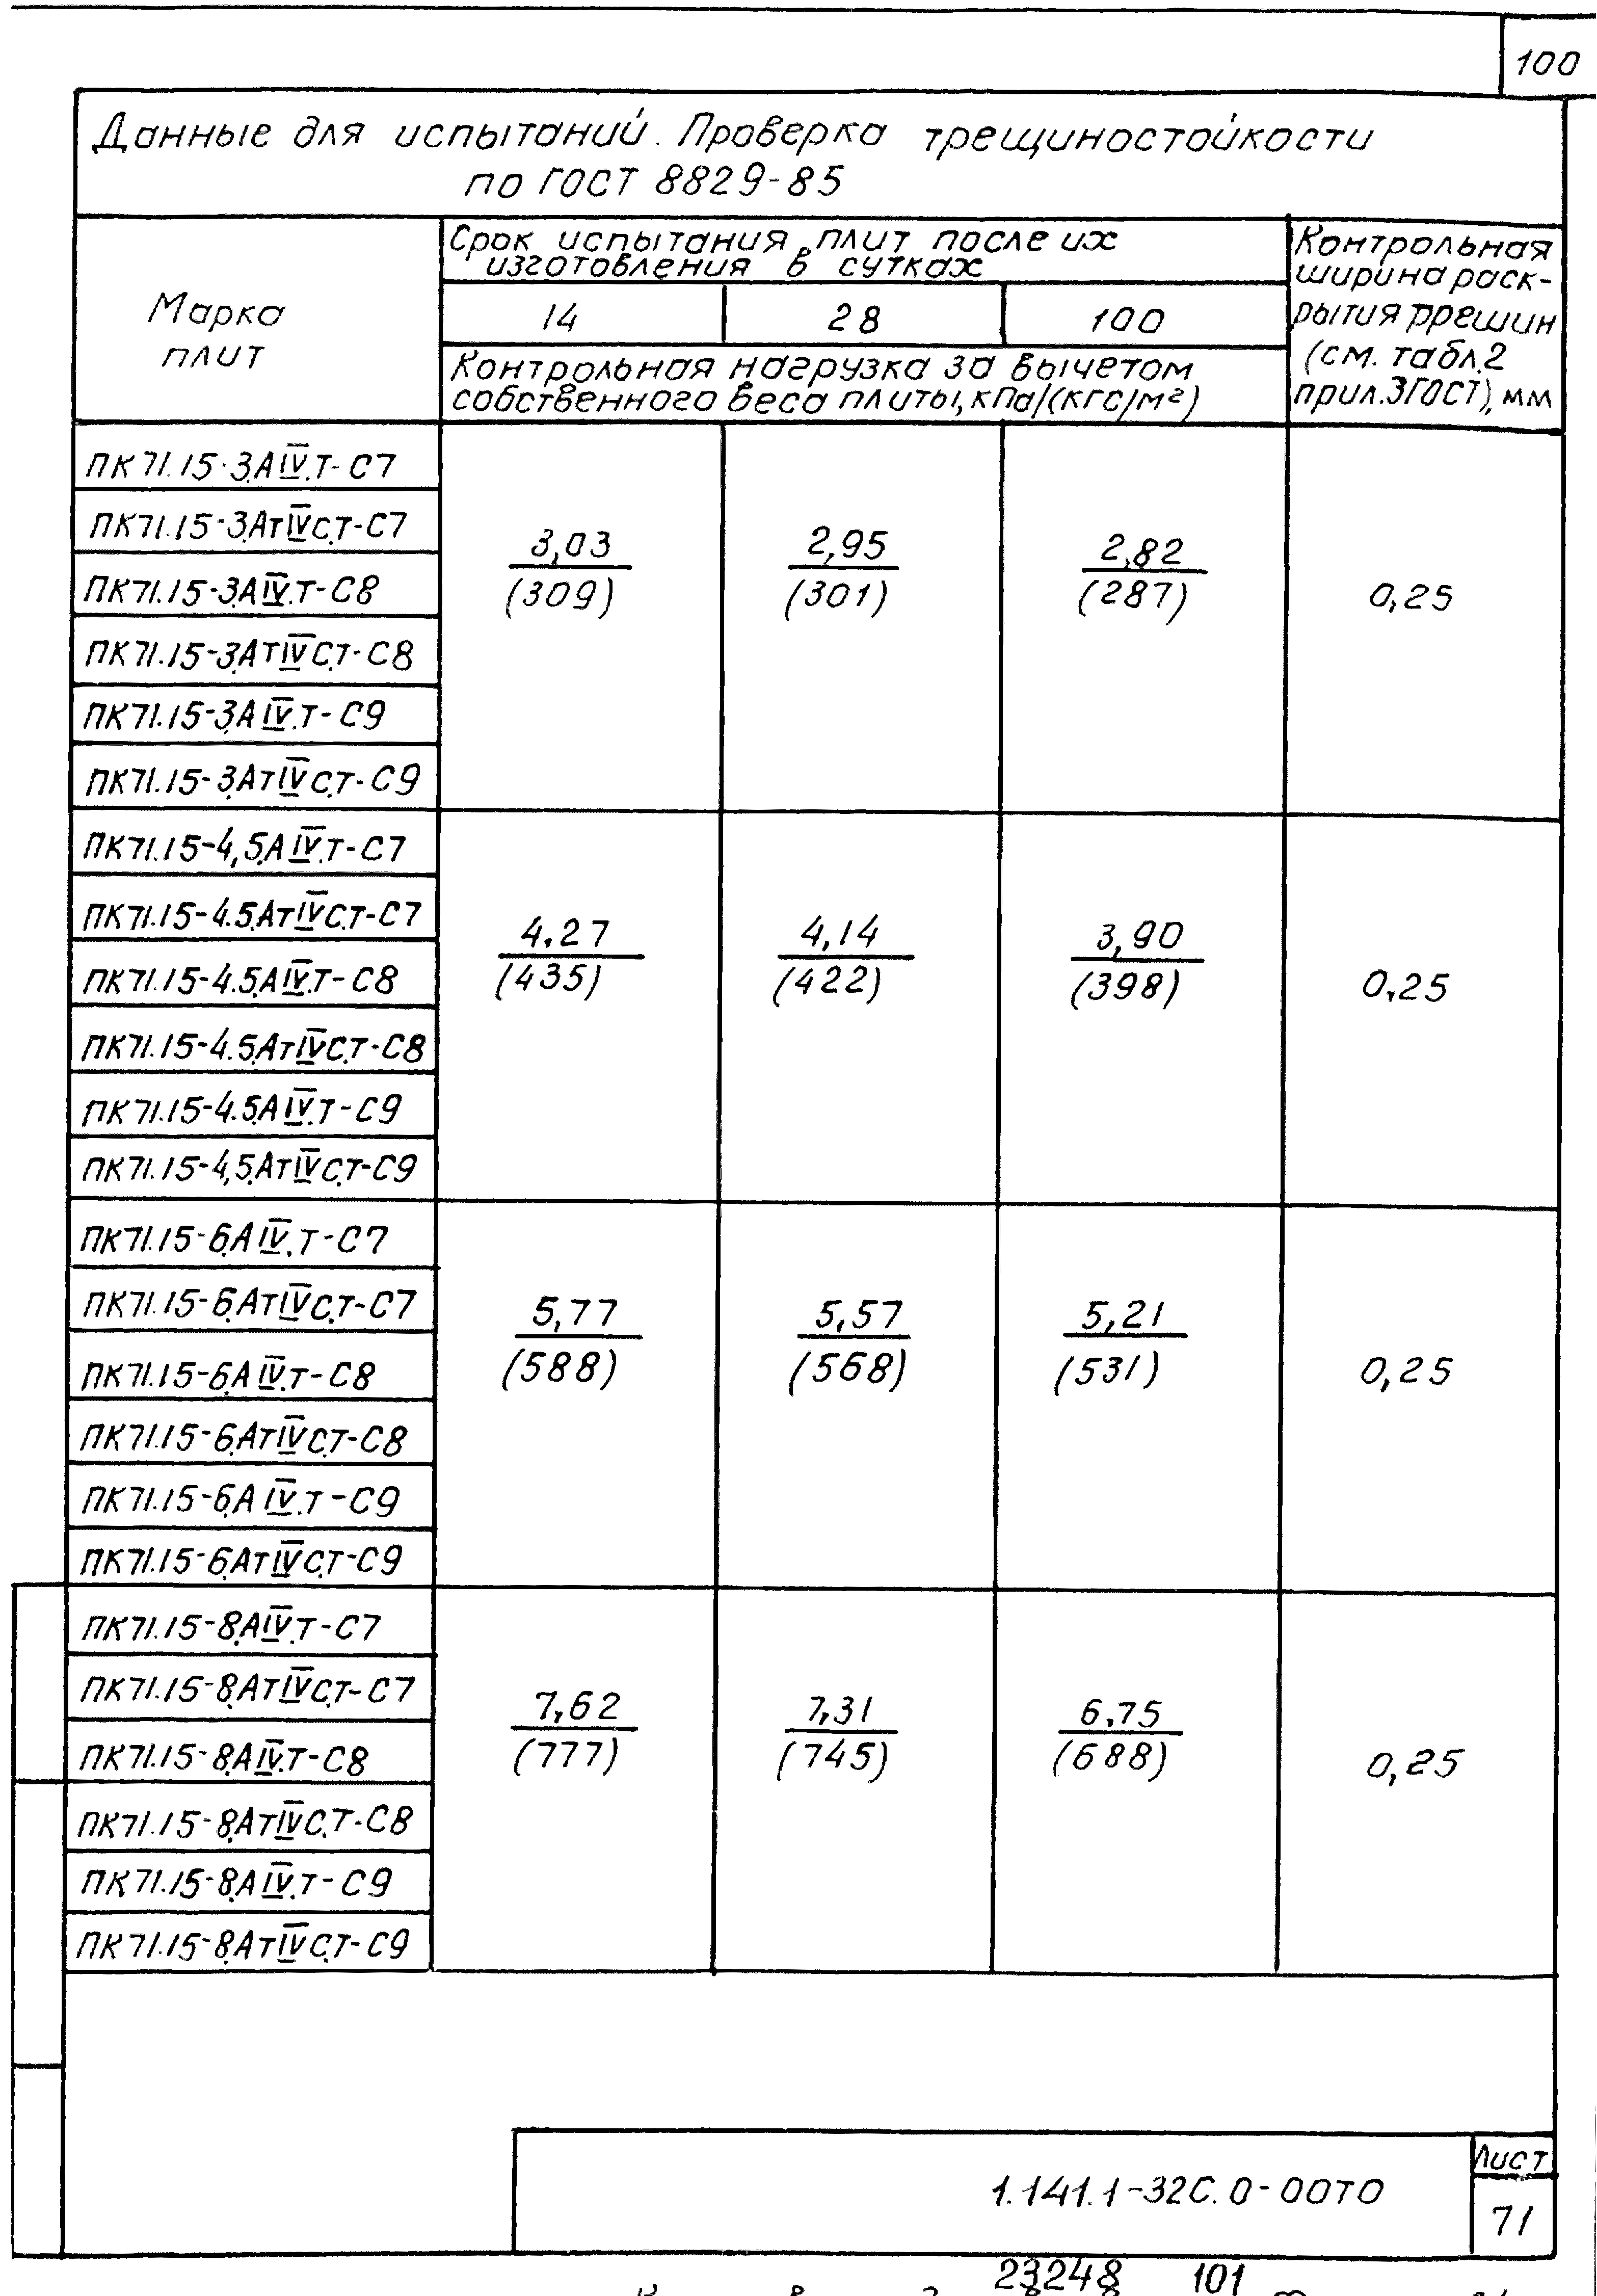 100
Данные для испытаний. Проверка трещиностойкости
по ГОСТ 8829-85
Марка
плит
Срок испытания плит после их
изготовления в сутках
14 28 100
Контрольная нагрузка за вычетом
собственного веса плиты, кПа/(кгс/м²)
Контрольная
ширина раск-
рытия ррешин
(см. табл.2
прил.3ГОСТ), мм
ПК71.15-3.АIV.Т-С7
ПК71.15-3.АтIVС.Т-С7
ПК71.15-3.АIV.Т-С8
ПК71.15-3.АтIVС.Т-С8
ПК71.15-3.АIV.Т-С9
ПК71.15-3.АтIVС.Т-С9
3,03 2,95 2,82
(309) (301) (287) 0,25
ПК71.15-4,5.АIV.Т-С7
ПК71.15-4.5.АтIVС.Т-С7
ПК71.15-4.5.АIV.Т-С8
ПК71.15-4.5.АтIVС.Т-С8
ПК71.15-4.5.АIV.Т-С9
ПК71.15-4,5.АтIVС.Т-С9
4,27 4,14 3,90
(435) (422) (398) 0,25
ПК71.15-6.АIV.Т-С7
ПК71.15-6.АтIVС.Т-С7
ПК71.15-6.АIV.Т-С8
ПК71.15-6.АтIVС.Т-С8
ПК71.15-6.АIV.Т-С9
ПК71.15-6.АтIVС.Т-С9
5,77 5,57 5,21
(588) (568) (531) 0,25
ПК71.15-8.АIV.Т-С7
ПК71.15-8.АтIVС.Т-С7
ПК71.15-8.АIV.Т-С8
ПК71.15-8.АтIVС.Т-С8
ПК71.15-8.АIV.Т-С9
ПК71.15-8.АтIVС.Т-С9
7,62 7,31 6,75
(777) (745) (688) 0,25
1.141.1-32С.0-00ТО
Лист
71
23248 101